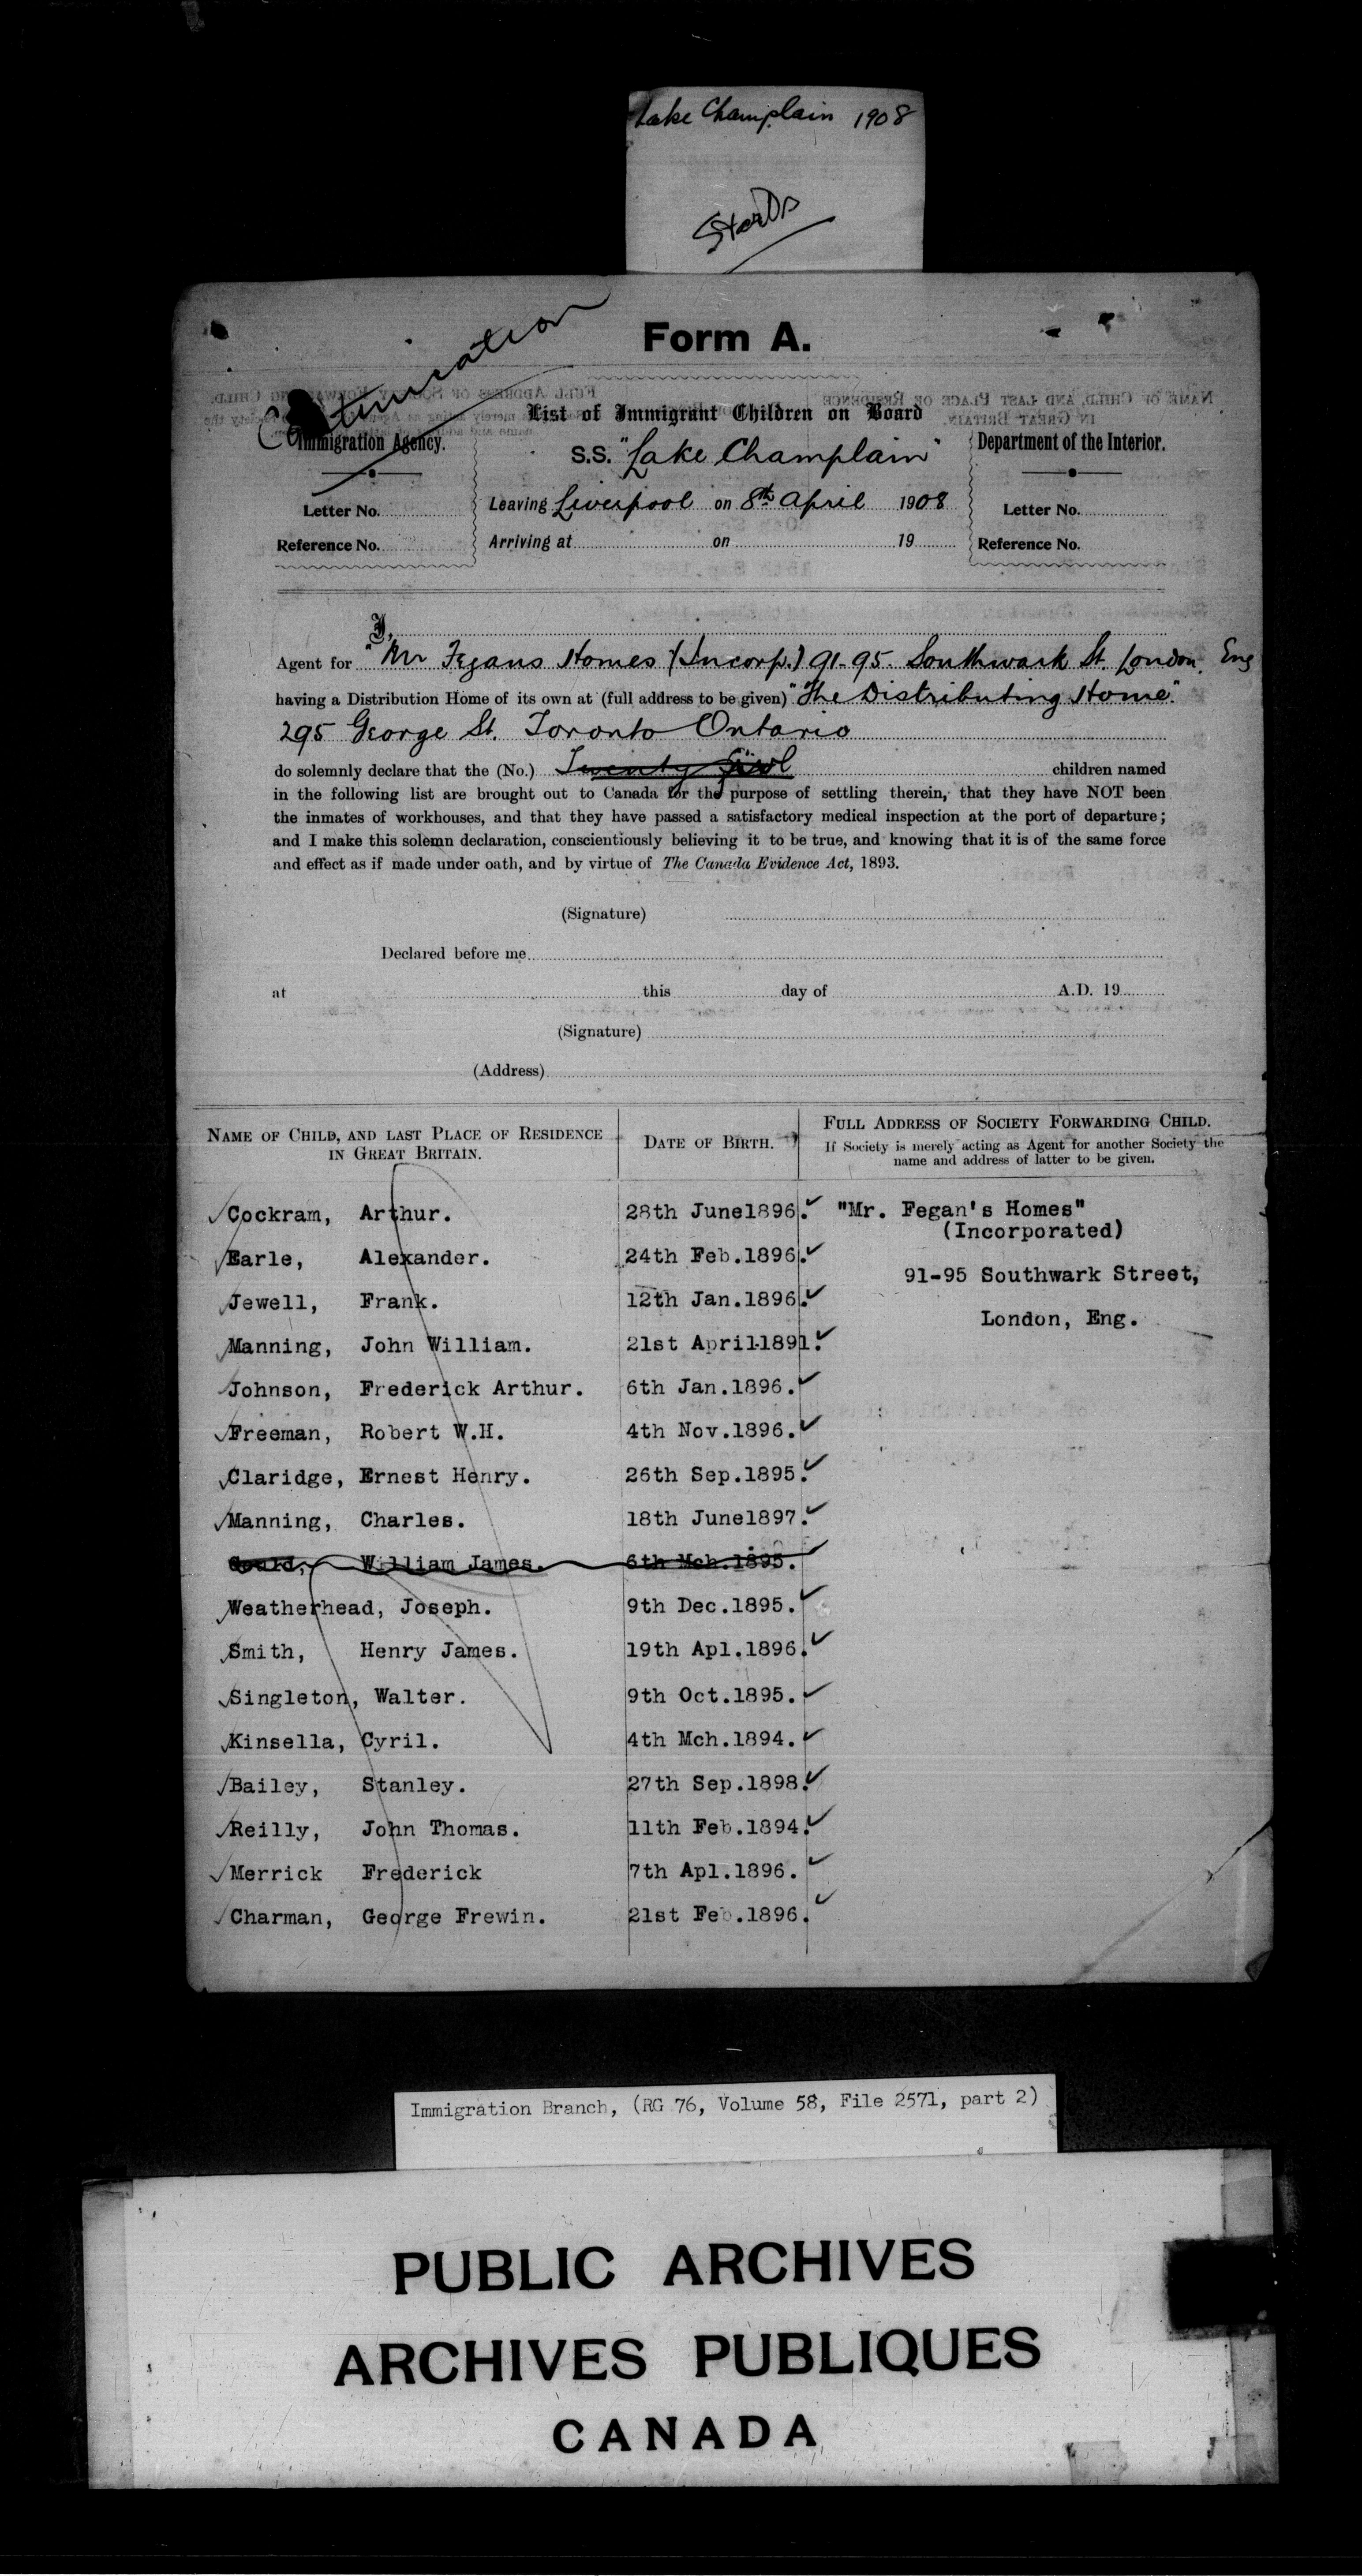 Lake Champlain 1908
Starts
Form A.
Continuation
List of Immigrant Children on Board
Immigration Agency.
S.S. "Lake Champlain"
Department of the Interior.
Letter No.
Leaving Liverpool on 8th April 1908
Letter No.
Reference No.
Arriving at on 19
Reference No.
I,
Agent for "Mr Fegans Homes (Incorp.) 91-95 Southwark St. London. Eng
having a Distribution Home of its own at (full address to be given) "The Distributing Home".
295 George St. Toronto Ontario
do solemnly declare that the (No.) Twenty children named
in the following list are brought out to Canada for the purpose of settling therein, that they have NOT been
the inmates of workhouses, and that they have passed a satisfactory medical inspection at the port of departure;
and I make this solemn declaration, conscientiously believing it to be true, and knowing that it is of the same force
and effect as if made under oath, and by virtue of The Canada Evidence Act, 1893.
(Signature)
Declared before me
at this day of A.D. 19
(Signature)
(Address)
NAME OF CHILD, AND LAST PLACE OF RESIDENCE
IN GREAT BRITAIN.
DATE OF BIRTH.
FULL ADDRESS OF SOCIETY FORWARDING CHILD.
If Society is merely acting as Agent for another Society the
name and address of latter to be given.
✓Cockram, Arthur. 28th June1896.✓ "Mr. Fegan's Homes"
(Incorporated)
✓Earle, Alexander. 24th Feb.1896.✓
91-95 Southwark Street,
✓Jewell, Frank. 12th Jan.1896.✓
London, Eng.
✓Manning, John William. 21st April-1891.✓
✓Johnson, Frederick Arthur. 6th Jan.1896.✓
✓Freeman, Robert W.H. 4th Nov.1896.✓
✓Claridge, Ernest Henry. 26th Sep.1895.✓
✓Manning, Charles. 18th June1897.✓
Gould, William James. 6th Mch.1895.
✓Weatherhead, Joseph. 9th Dec.1895.✓
✓Smith, Henry James. 19th Apl.1896.✓
✓Singleton, Walter. 9th Oct.1895.✓
✓Kinsella, Cyril. 4th Mch.1894.✓
✓Bailey, Stanley. 27th Sep.1898.✓
✓Reilly, John Thomas. 11th Feb.1894.✓
✓Merrick Frederick 7th Apl.1896.✓
✓Charman, George Frewin. 21st Feb.1896.✓
Immigration Branch, (RG 76, Volume 58, File 2571, part 2)
PUBLIC ARCHIVES
ARCHIVES PUBLIQUES
CANADA